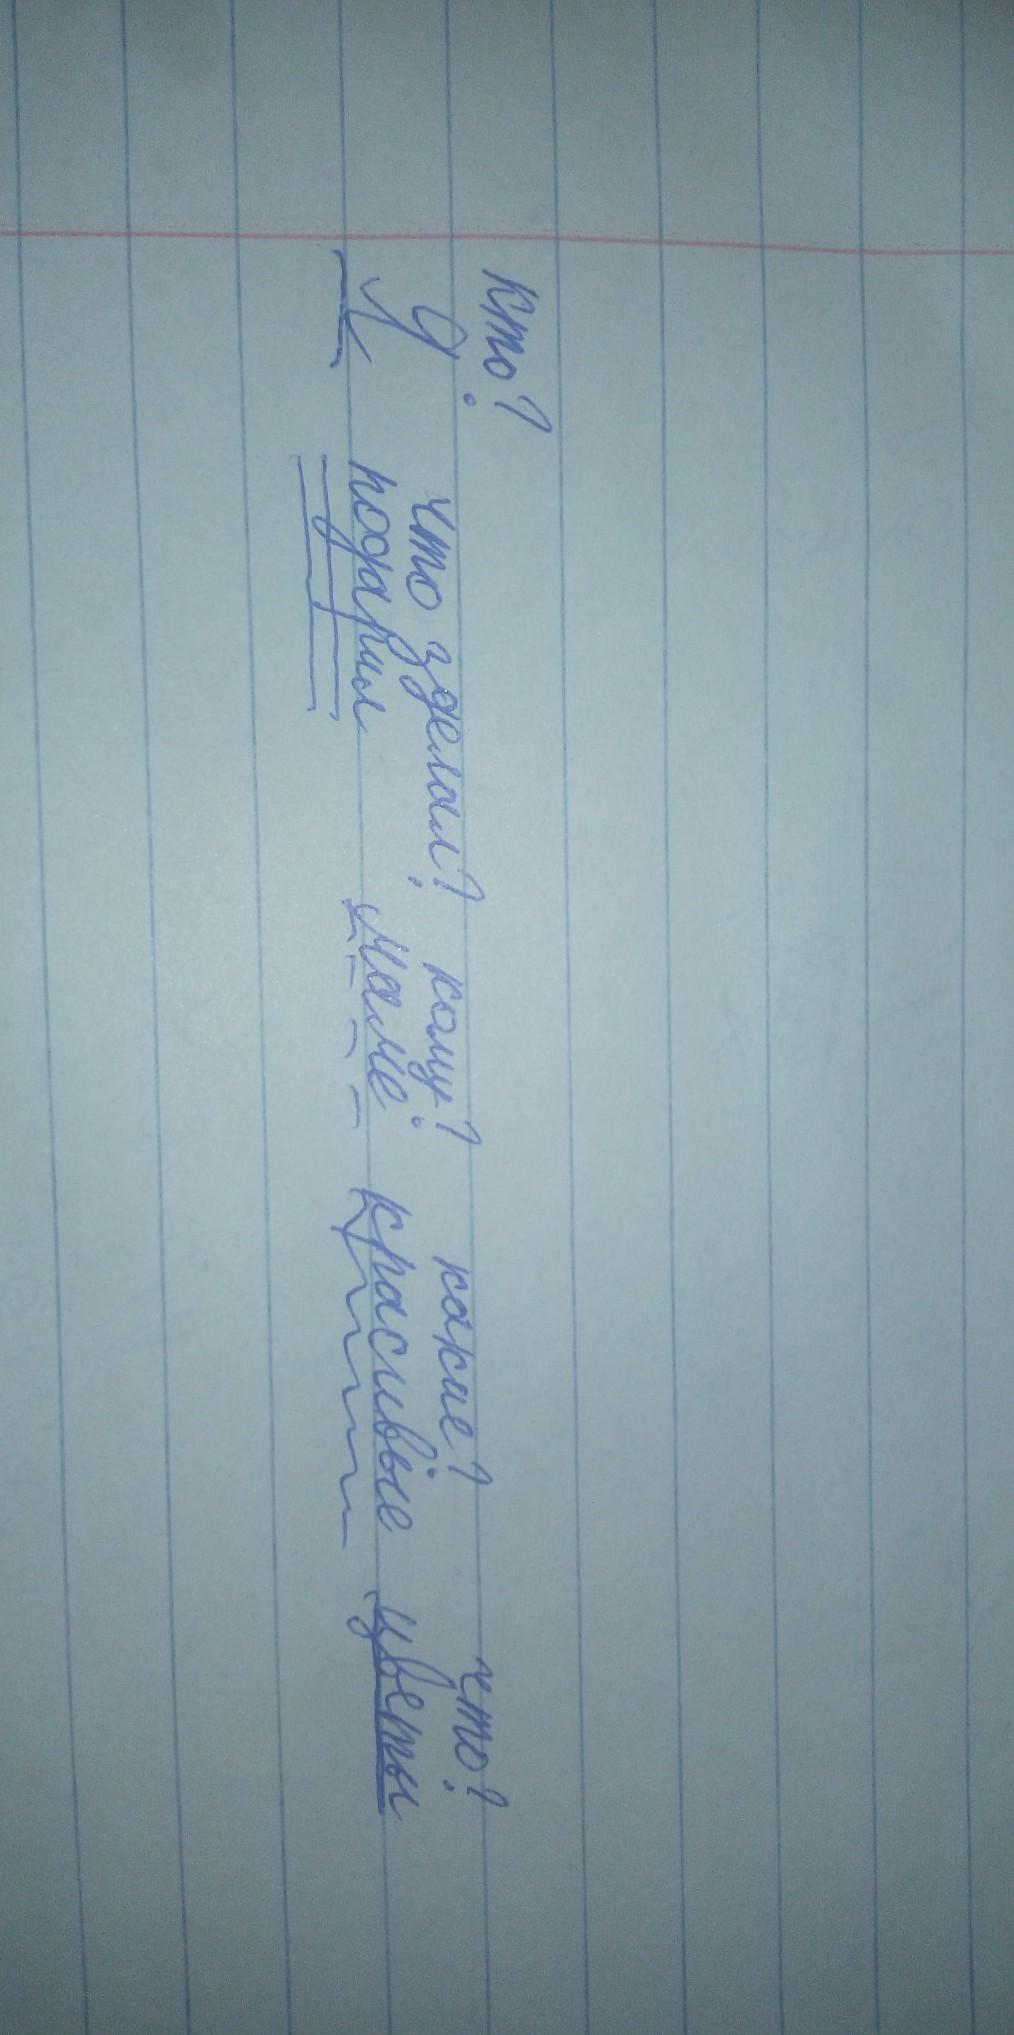 кто? что зделал? кому? какие? что?
Я подарил маме красивые цветы